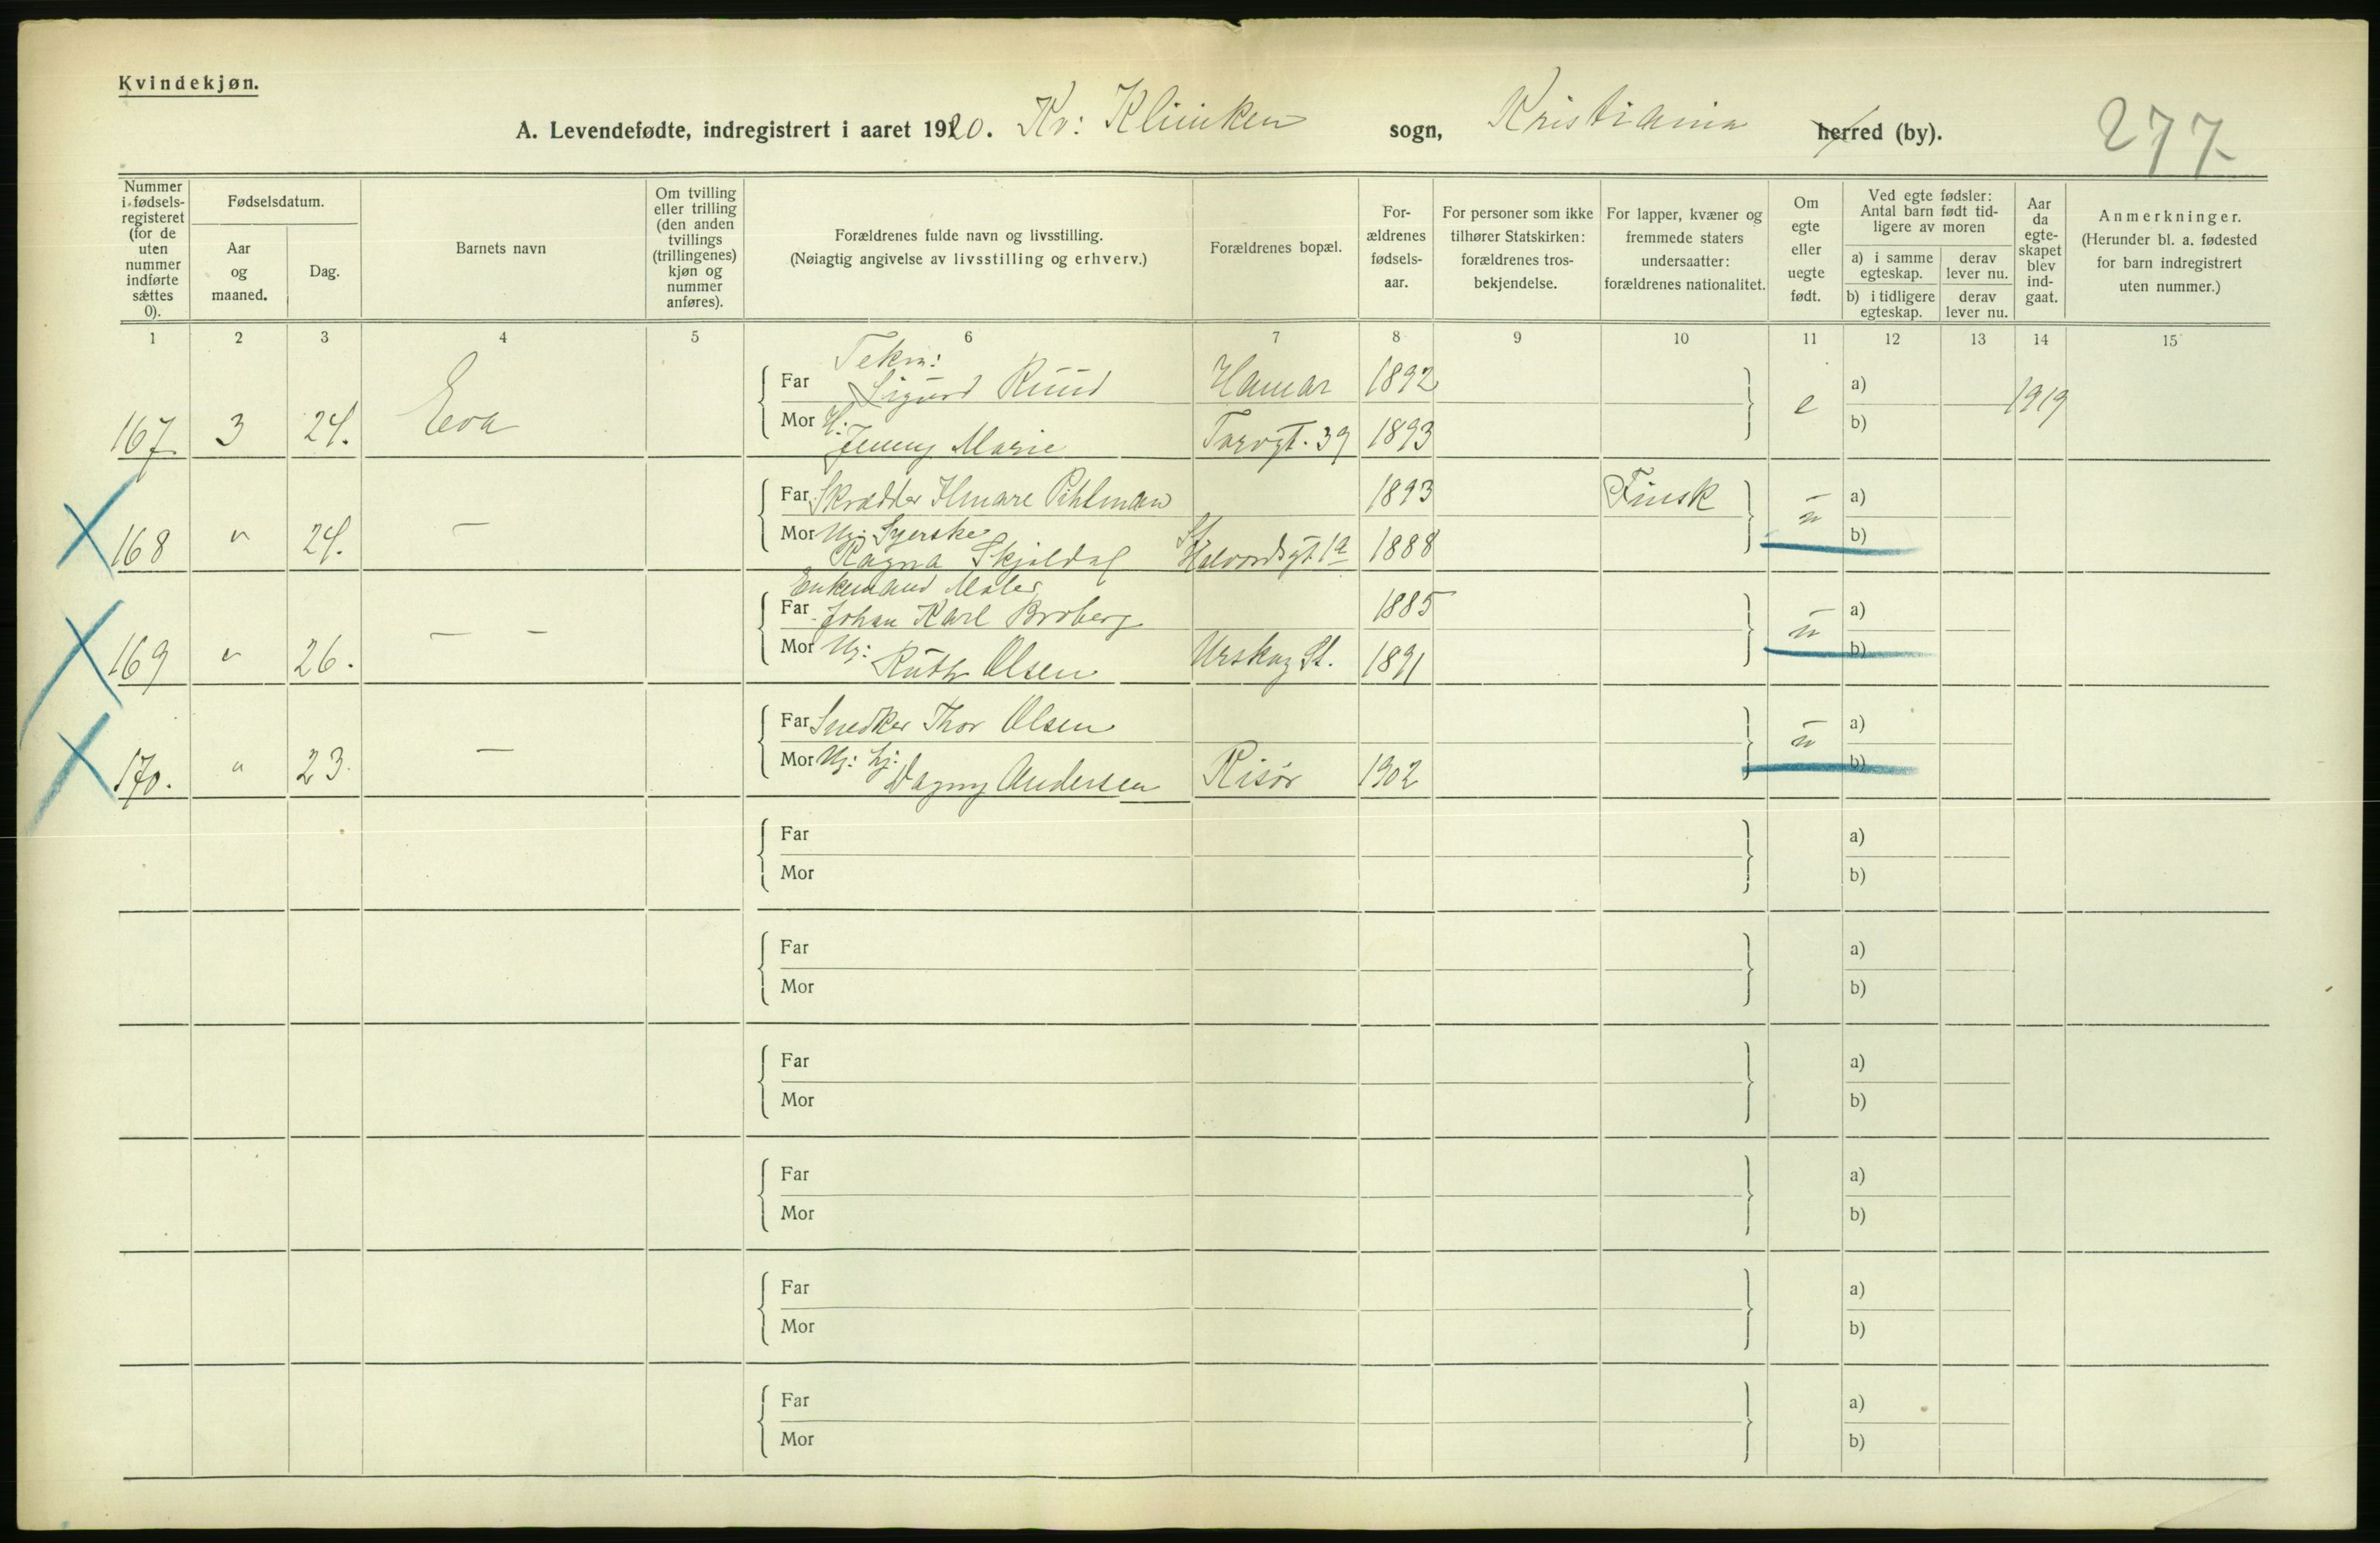 Kvindekjøn.
A. Levendefødte, indregistrert i aaret 1920. Kv: Kliniken sogn, Kristiania herred (by).
277
Nummer i fødselsregisteret (for de uten nummer indførte sættes 0).
Fødselsdatum.
Aar og maaned.
Dag.
Barnets navn
Om tvilling eller trilling (den anden tvillings (trillingenes) kjøn og nummer anføres).
Forældrenes fulde navn og livsstilling.
(Nøiagtig angivelse av livsstilling og erhverv.)
Forældrenes bopæl.
Forældrenes fødselsaar.
For personer som ikke tilhører Statskirken: forældrenes trosbekjendelse.
For lapper, kvæner og fremmede staters undersaatter: forældrenes nationalitet.
Om egte eller uegte født.
Ved egte fødsler: Antal barn født tidligere av moren
a) i samme egteskap.
derav lever nu.
b) i tidligere egteskap.
derav lever nu.
Aar da egteskapet blev indgaat.
Anmerkninger.
(Herunder bl. a. fødested for barn indregistrert uten nummer.)
1 2 3 4 5 6 7 8 9 10 11 12 13 14 15
Tekn:
Far Sigurd Ruud Hamar 1892 a)
167. 3 24. Eva e 1919
Mor H: Jenny Marie Torvgt. 39 1893 b)
Far Skrædder Ilmare Pihlman 1893 Finsk a)
168 " 24. — u
Mor Ug: Syerske
Ragna Skjeldal St Halvardsgt. 1a 1888 b)
Enkemand Maler
Far Johan Karl Broberg 1885 a)
169 " 26. — — u
Mor Ug: Ruth Olsen Urskog St. 1891 b)
Far Snedker Thor Olsen a)
170. " 23. — u
Mor Ug: Hj: Dagny Andersen Risør 1902 b)
Far a)
Mor b)
Far a)
Mor b)
Far a)
Mor b)
Far a)
Mor b)
Far a)
Mor b)
Far a)
Mor b)